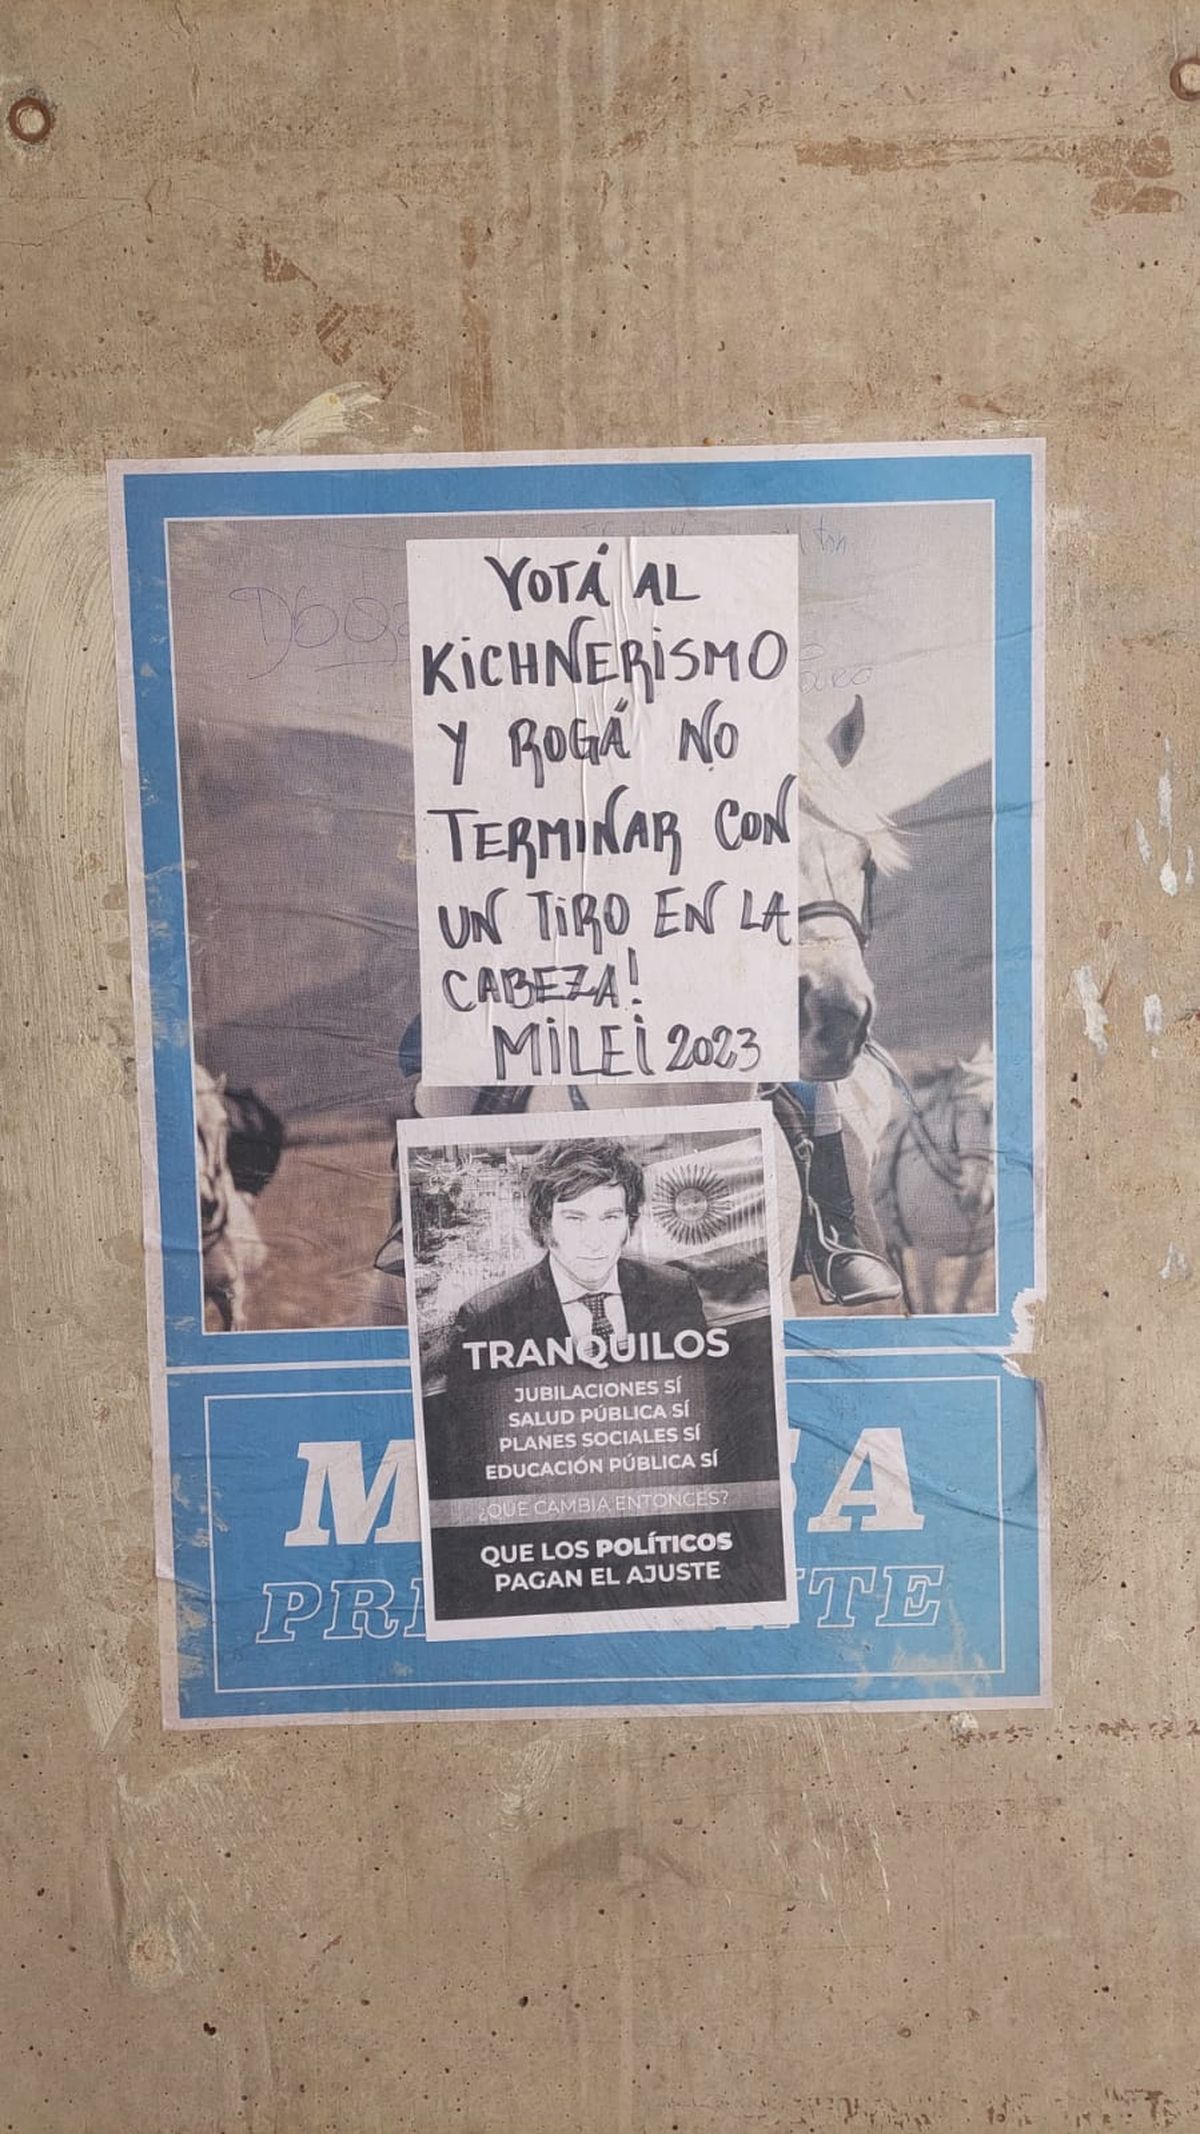 VOTÁ AL
KICHNERISMO
Y ROGÁ NO
TERMINAR CON
UN TIRO EN LA
CABEZA!
MILEI 2023
TRANQUILOS
JUBILACIONES SÍ
SALUD PÚBLICA SÍ
PLANES SOCIALES SÍ
EDUCACIÓN PÚBLICA SÍ
¿QUE CAMBIA ENTONCES?
QUE LOS POLÍTICOS
PAGAN EL AJUSTE